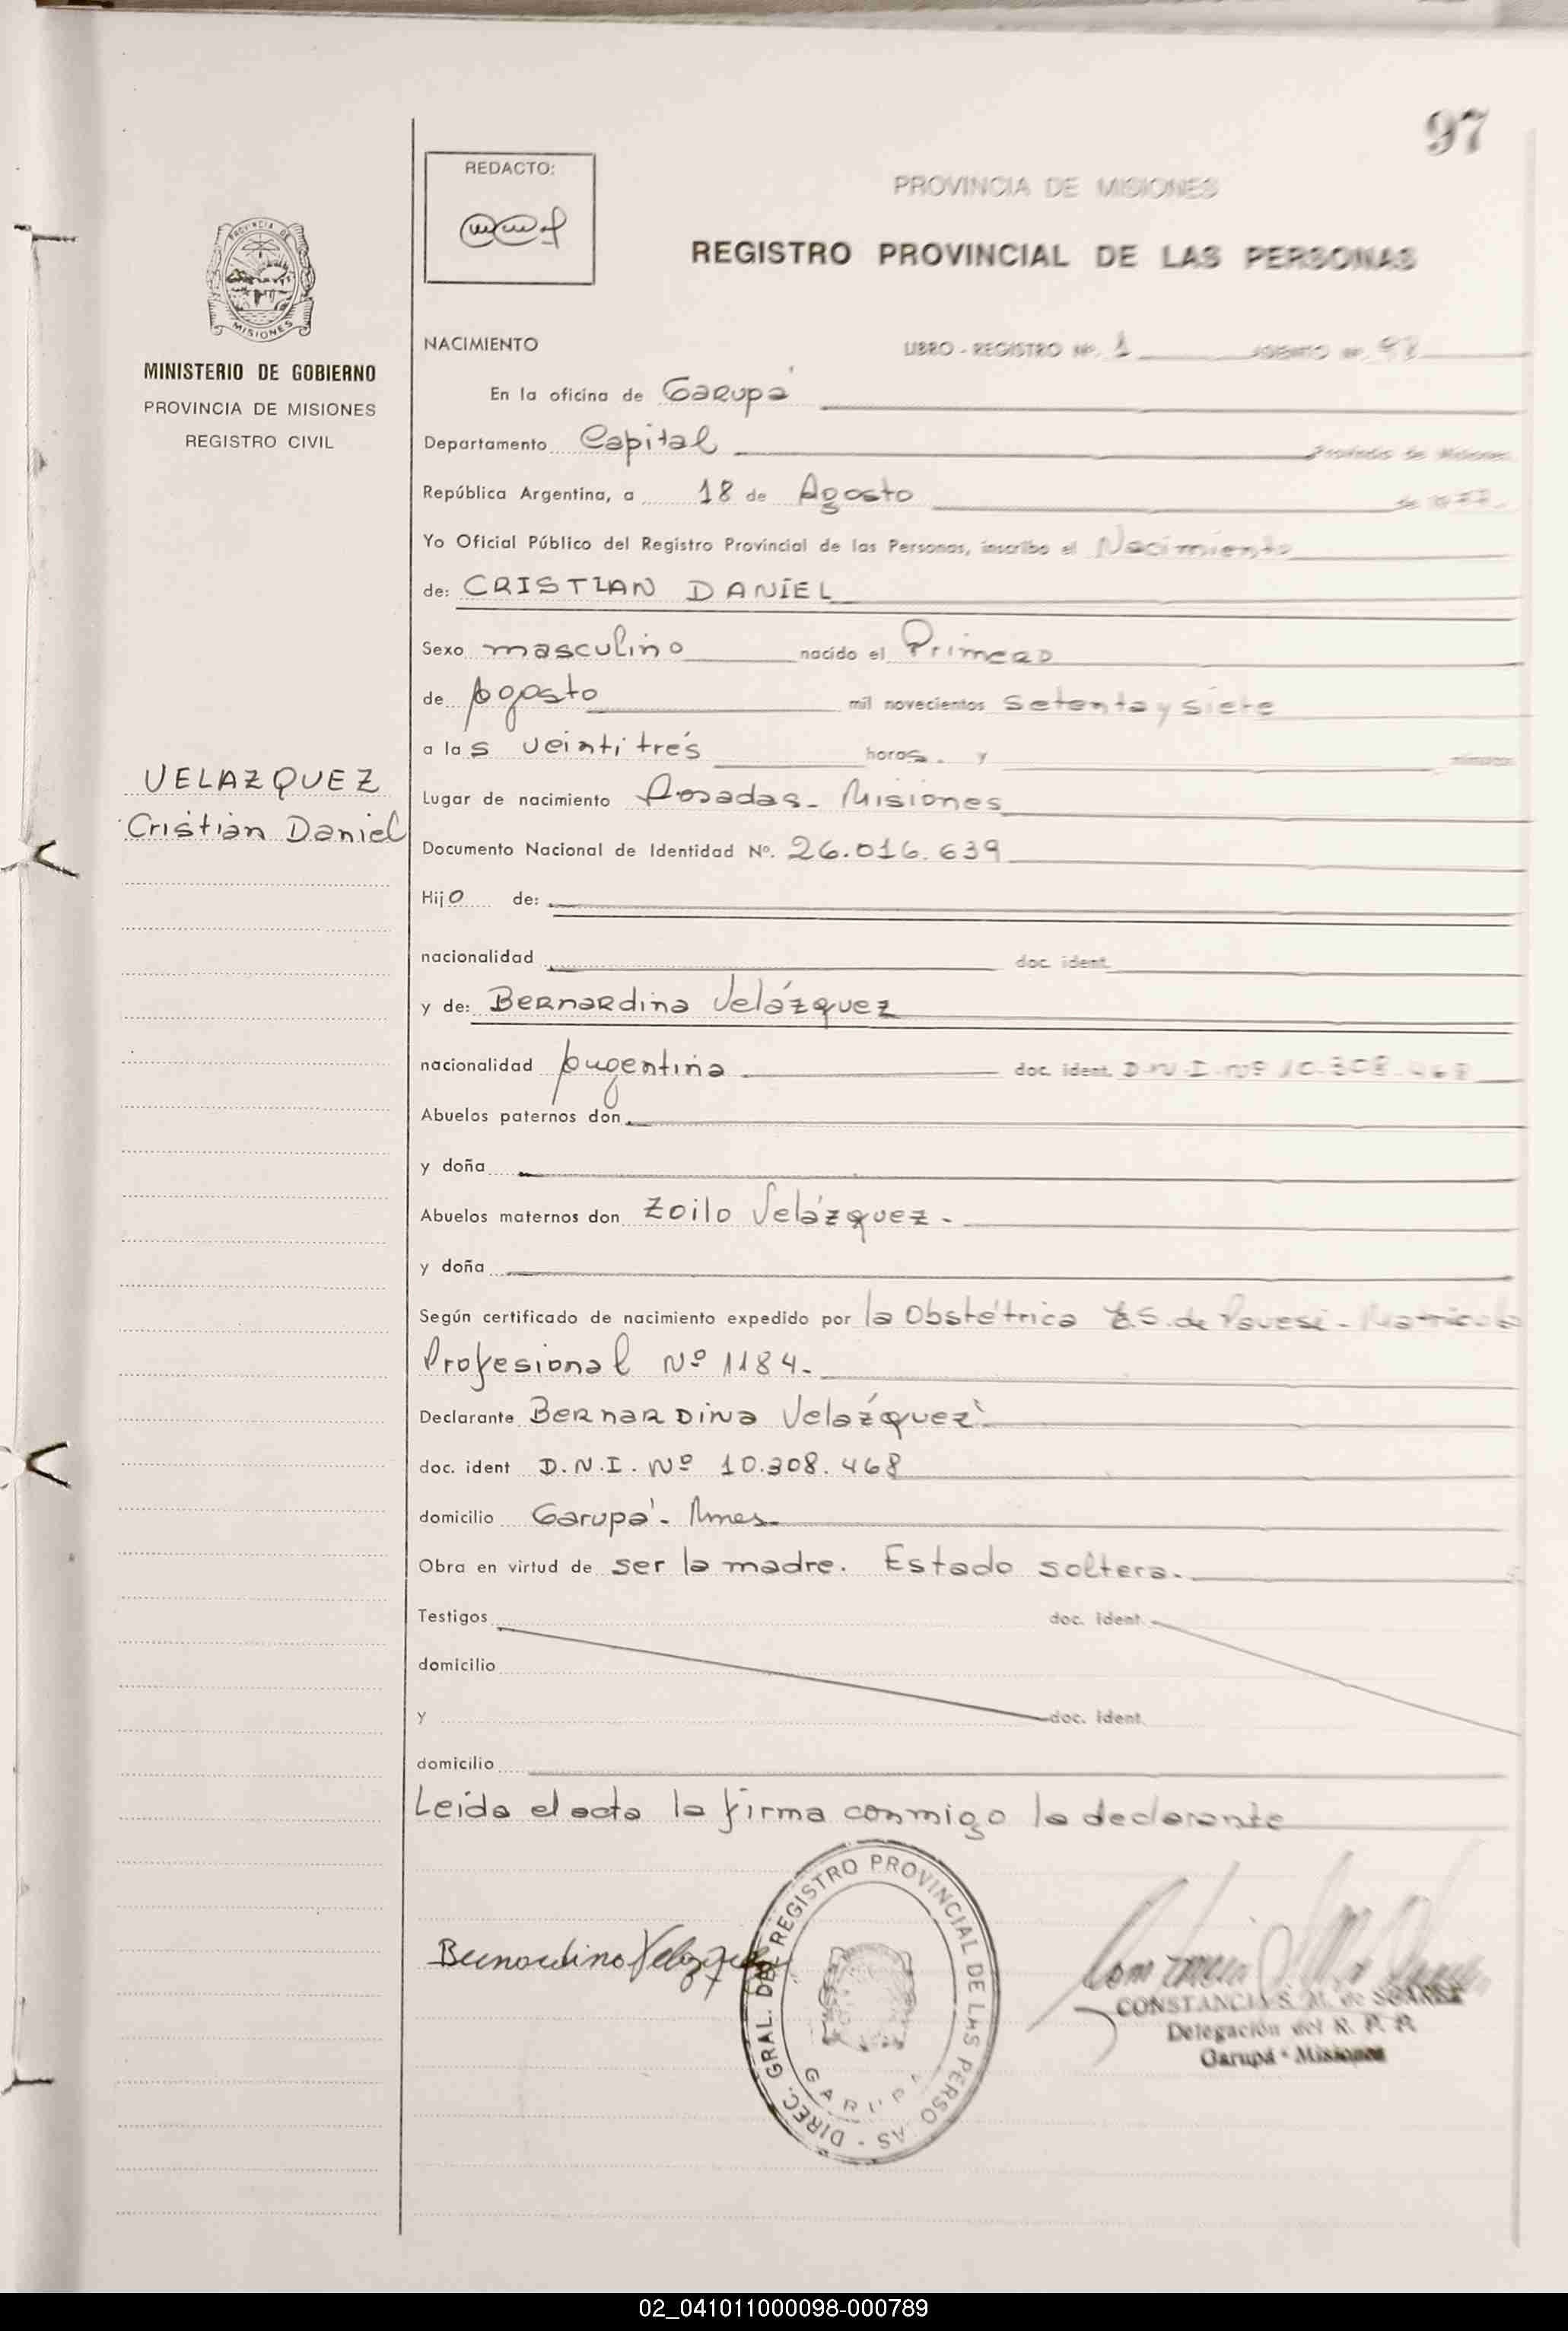 97
REDACTO:
PROVINCIA DE MISIONES
REGISTRO PROVINCIAL DE LAS PERSONAS
PROVINCIA DE
MISIONES
MINISTERIO DE GOBIERNO
PROVINCIA DE MISIONES
REGISTRO CIVIL
VELAZQUEZ
Cristian Daniel
NACIMIENTO LIBRO - REGISTRO Nº. 1 ASIENTO Nº.
En la oficina de Garupá
Departamento Capital Provincia de Misiones
República Argentina, a 18 de Agosto de 1977.
Yo Oficial Público del Registro Provincial de las Personas, inscribo el Nacimiento
de: CRISTIAN DANIEL
Sexo masculino nacido el Primero
de Agosto mil novecientos setenta y siete
a las veintitrés horas. y minutos
Lugar de nacimiento Posadas - Misiones
Documento Nacional de Identidad Nº. 26.016.639
Hijo de:
nacionalidad doc. ident.
y de: Bernardina Velázquez
nacionalidad Argentina doc. ident. D.N.I. Nº 10.308.468
Abuelos paternos don
y doña
Abuelos maternos don Zoilo Velázquez.
y doña
Según certificado de nacimiento expedido por la Obstétrica E.S. de Pavesi - Matrícula
Profesional Nº 1184.
Declarante Bernardina Velázquez
doc. ident D.N.I. Nº 10.308.468
domicilio Garupá - Mnes.
Obra en virtud de ser la madre. Estado soltera.
Testigos doc. ident.
domicilio
y doc. ident.
domicilio
Leida el acta la firma conmigo la declarante
Bernardina Velazquez
DIREC. GRAL. DEL REGISTRO PROVINCIAL DE LAS PERSO AS -
GARUPA
CONSTANCIA S. M. de SOAREZ
Delegación del R. P. P.
Garupá - Misiones
02_041011000098-000789